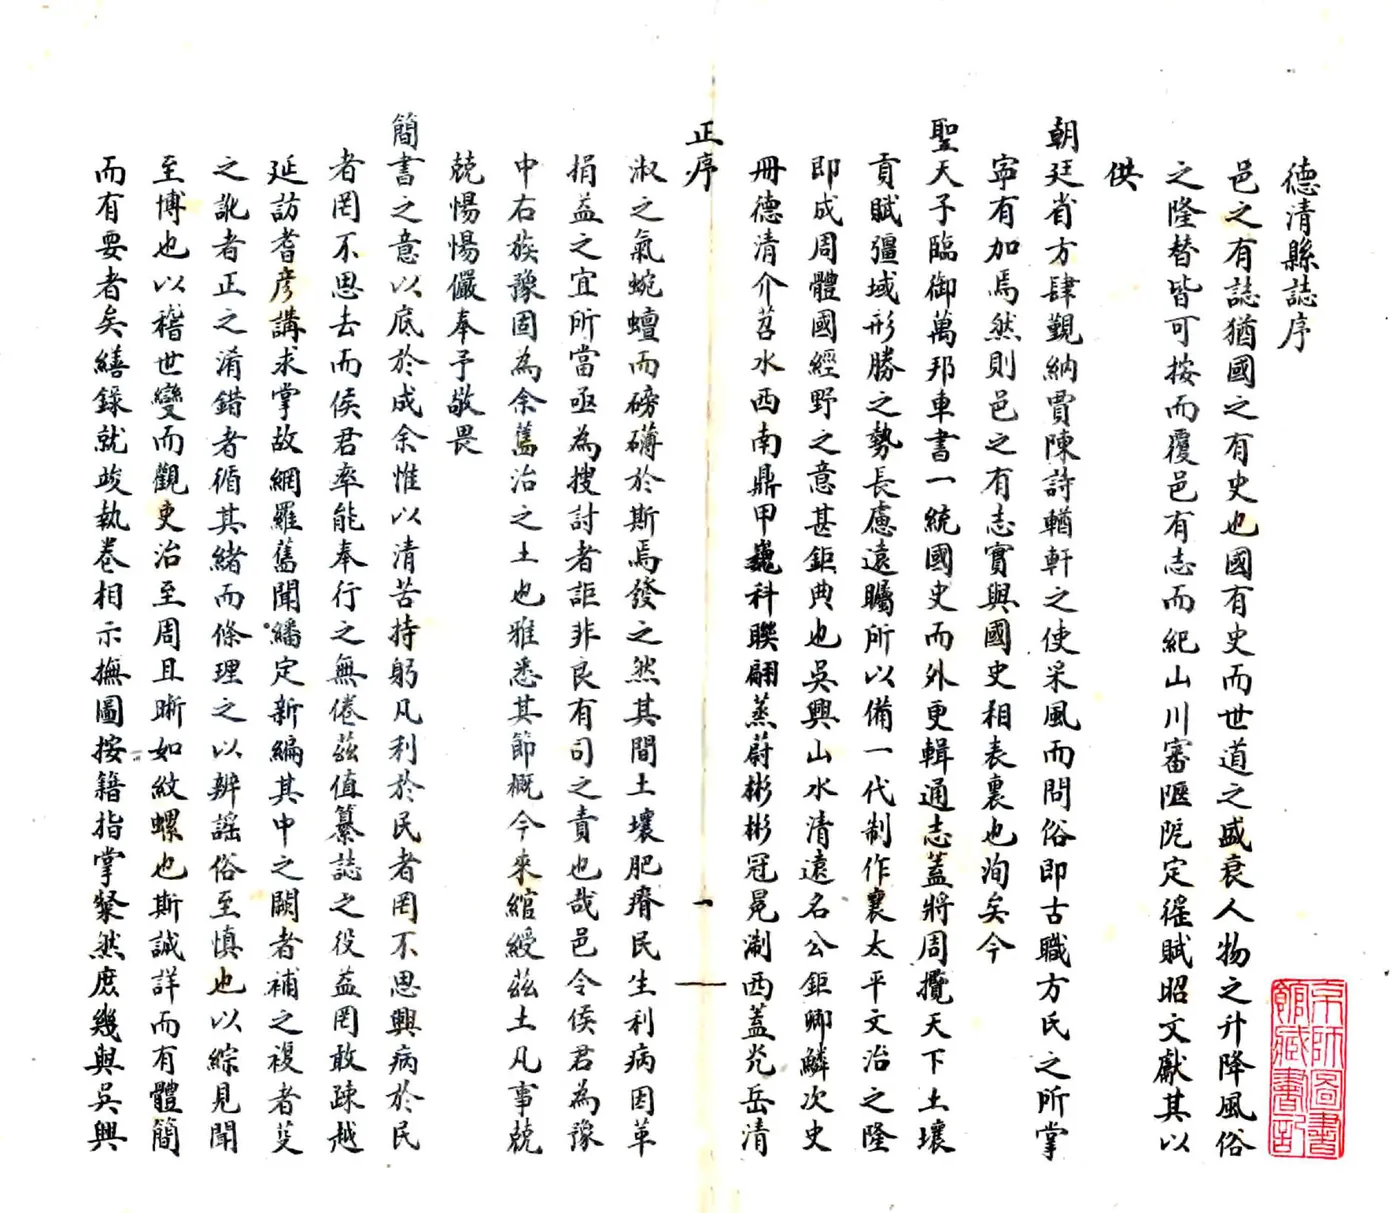 德清縣誌序
邑之有誌猶國之有史也國有史而世道之盛衰人物之升降風俗
之隆替皆可按而覆邑有志而紀山川審阨定徭賦昭文獻其以
供
朝廷省方肆覲納賈陳詩輶軒之使采風而問俗即古職方氏之所掌
寕有加焉然則邑之有志實與國史相表裏也洵矣今
聖天子臨御萬邦車書一統國史而外更輯通志蓋將周攬天下土壤
貢賦彊域形勝之勢長慮遠矚所以備一代制作襄太平文治之隆
即成周體國經野之意甚鉅典也吳興山水清遠名公鉅卿鱗次史
冊德清介苕水西南鼎甲巍科聯翩蒸蔚彬彬冠冕淛西蓋光岳清
正序
一
淑之氣蜿蟺而磅礴於斯焉發之然其間土壤肥瘠民生利病因革
捐益之宜所當亟為搜討者詎非良有司之責也哉邑令侯君為豫
中右族豫固為余舊治之土也雅悉其節概今來綰綬茲土凡事兢
兢惕惕儼奉予敬畏
簡書之意以底於成余惟以清苦持躬凡利於民者罔不思興病於民
者罔不思去而侯君率能奉行之無倦茲值纂誌之役益罔敢疎越
延訪耆彦講求掌故網羅舊聞繙定新編其中之闕者補之複者芟
之訛者正之淆錯者循其緒而條理之以辨謡俗至慎也以綜見聞
至博也以稽世變而觀吏治至周且晰如紋螺也斯誠詳而有體簡
而有要者矣繕錄就竣執卷相示撫圖按籍指掌粲然庶幾與吳興
京師圖書館藏書記